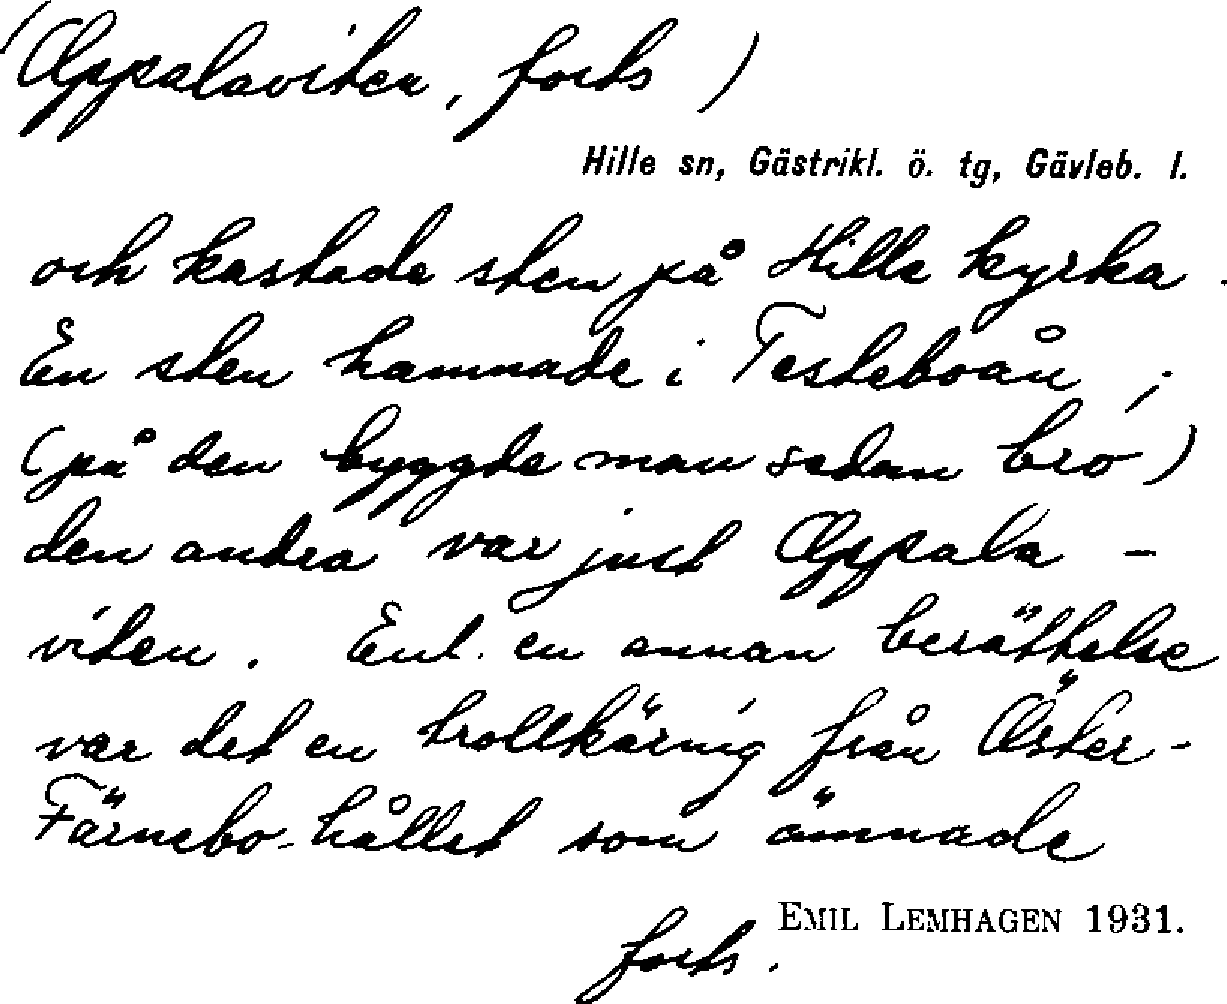 (Oppalaviten, forts)
Hille sn, Gästrikl. ö. tg, Gävleb. l.
och kastade sten på Hille kyrka.
En sten hamnade i Testeboån,
(på den byggde man sedan bro)
den andra var just Oppala-
viten. Enl. en annan berättelse
var det en trollkäring från Öster-
Färnebo-hållet som ämnade
EMIL LEMHAGEN 1931.
forts.